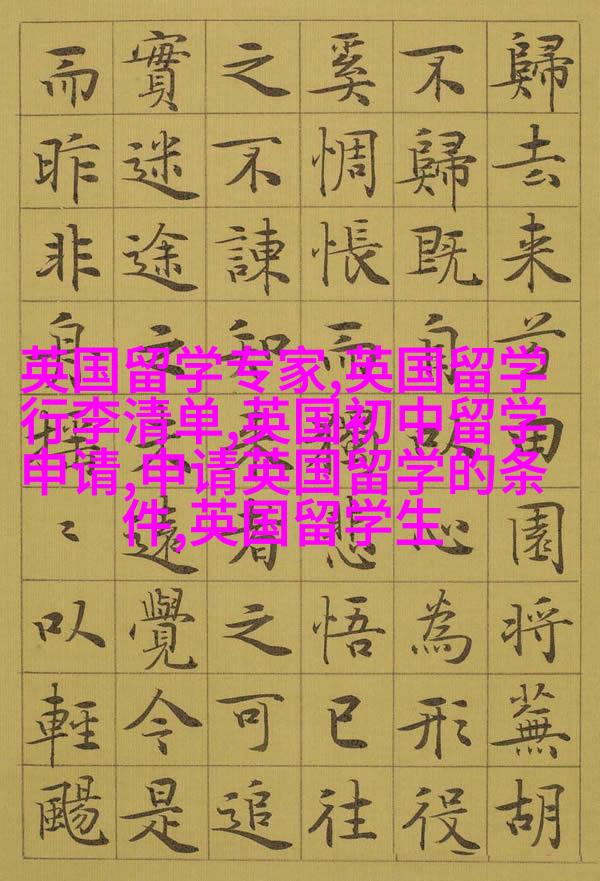 歸去来田園将蕪胡
不歸既自以心為形役
奚惆悵而悲悟已往
之不諫知者之可追
實迷途之遠覺今是
而昨非以輕颺
英国留学专家,英国留学
行李清单,英国初中留学
申请,申请英国留学的条
件,英国留学生